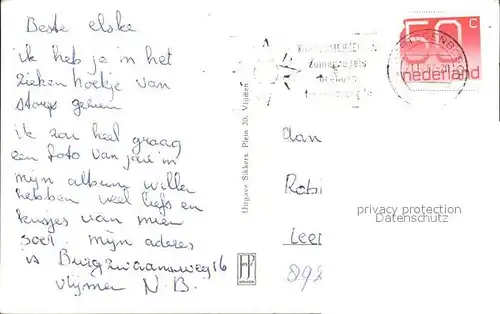 Beste elske
ik heb je in het
zieken hoekje van
storys gezien
ik zou heel graag
een foto van jou in
mijn album willen
hebben veel liefs en
kusjes van mien
mijn adres
is Burg zwaansweg 16
vlijmen N.B.
Uitgave Sikkers, Plein 20, Vlijmen
50 c
nederland
Zomerzegels
aan
Robi
Leer
privacy protection
Datenschutz